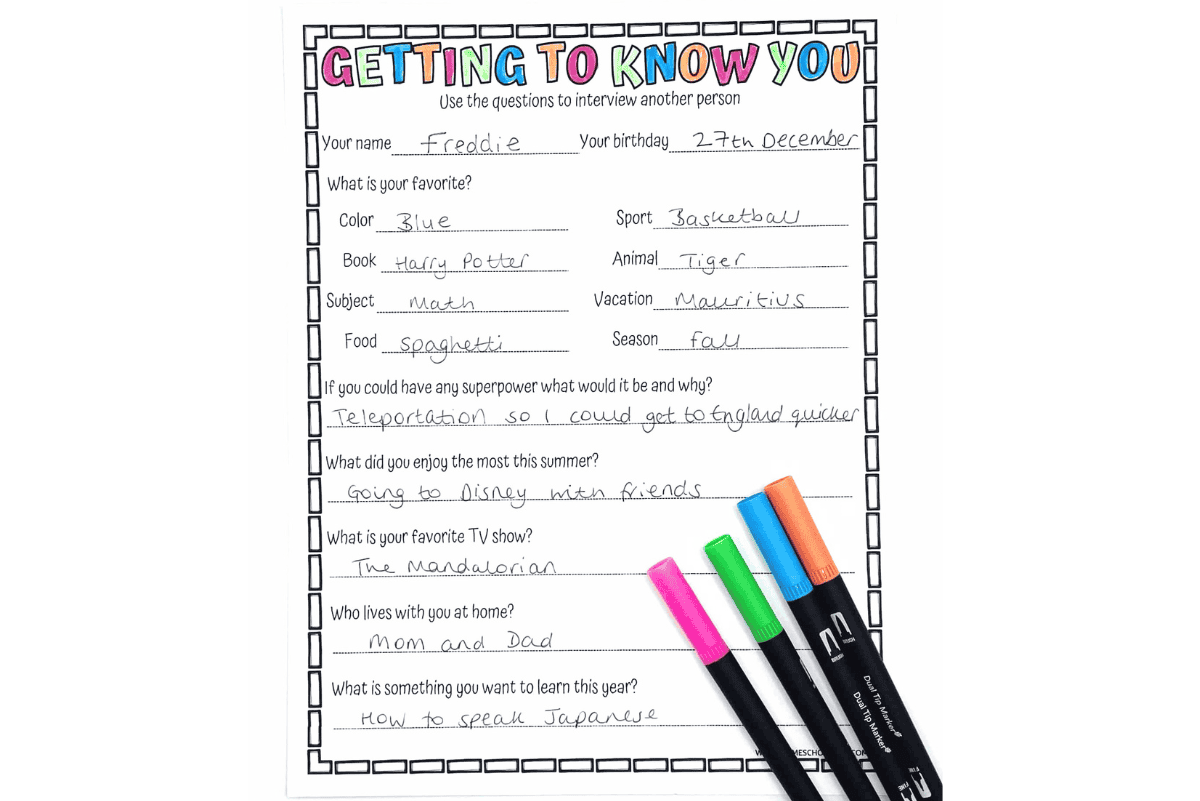 GETTING TO KNOW YOU
Use the questions to interview another person
Your name Freddie Your birthday 27th December
What is your favorite?
Color Blue Sport Basketball
Book Harry Potter Animal Tiger
Subject Math Vacation Mauritius
Food Spaghetti Season Fall
If you could have any superpower what would it be and why?
Teleportation so I could get to England quicker
What did you enjoy the most this summer?
Going to Disney with friends
What is your favorite TV show?
The Mandalorian
Who lives with you at home?
Mom and Dad
What is something you want to learn this year?
How to speak Japanese
BRUSH
Dual Tip Marker
Dual Tip Marker